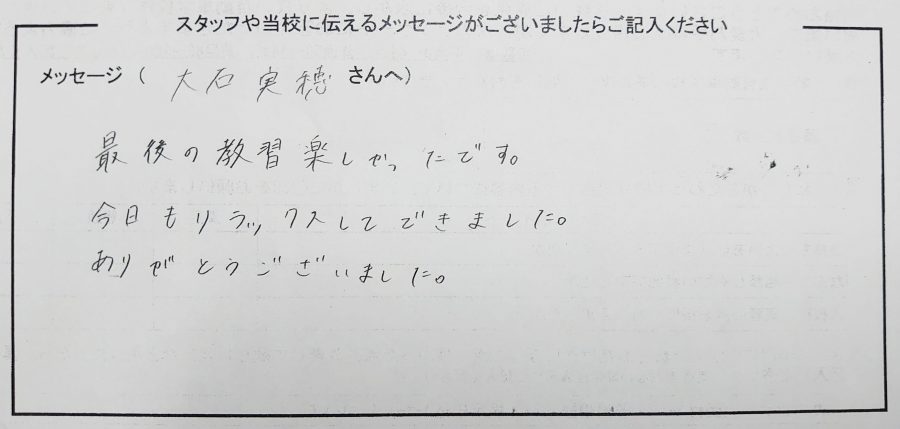 スタッフや当校に伝えるメッセージがございましたらご記入ください
メッセージ ( 大石 実穂 さんへ)
最後の教習楽しかったです。
今日もリラックスしてできました。
ありがとうございました。